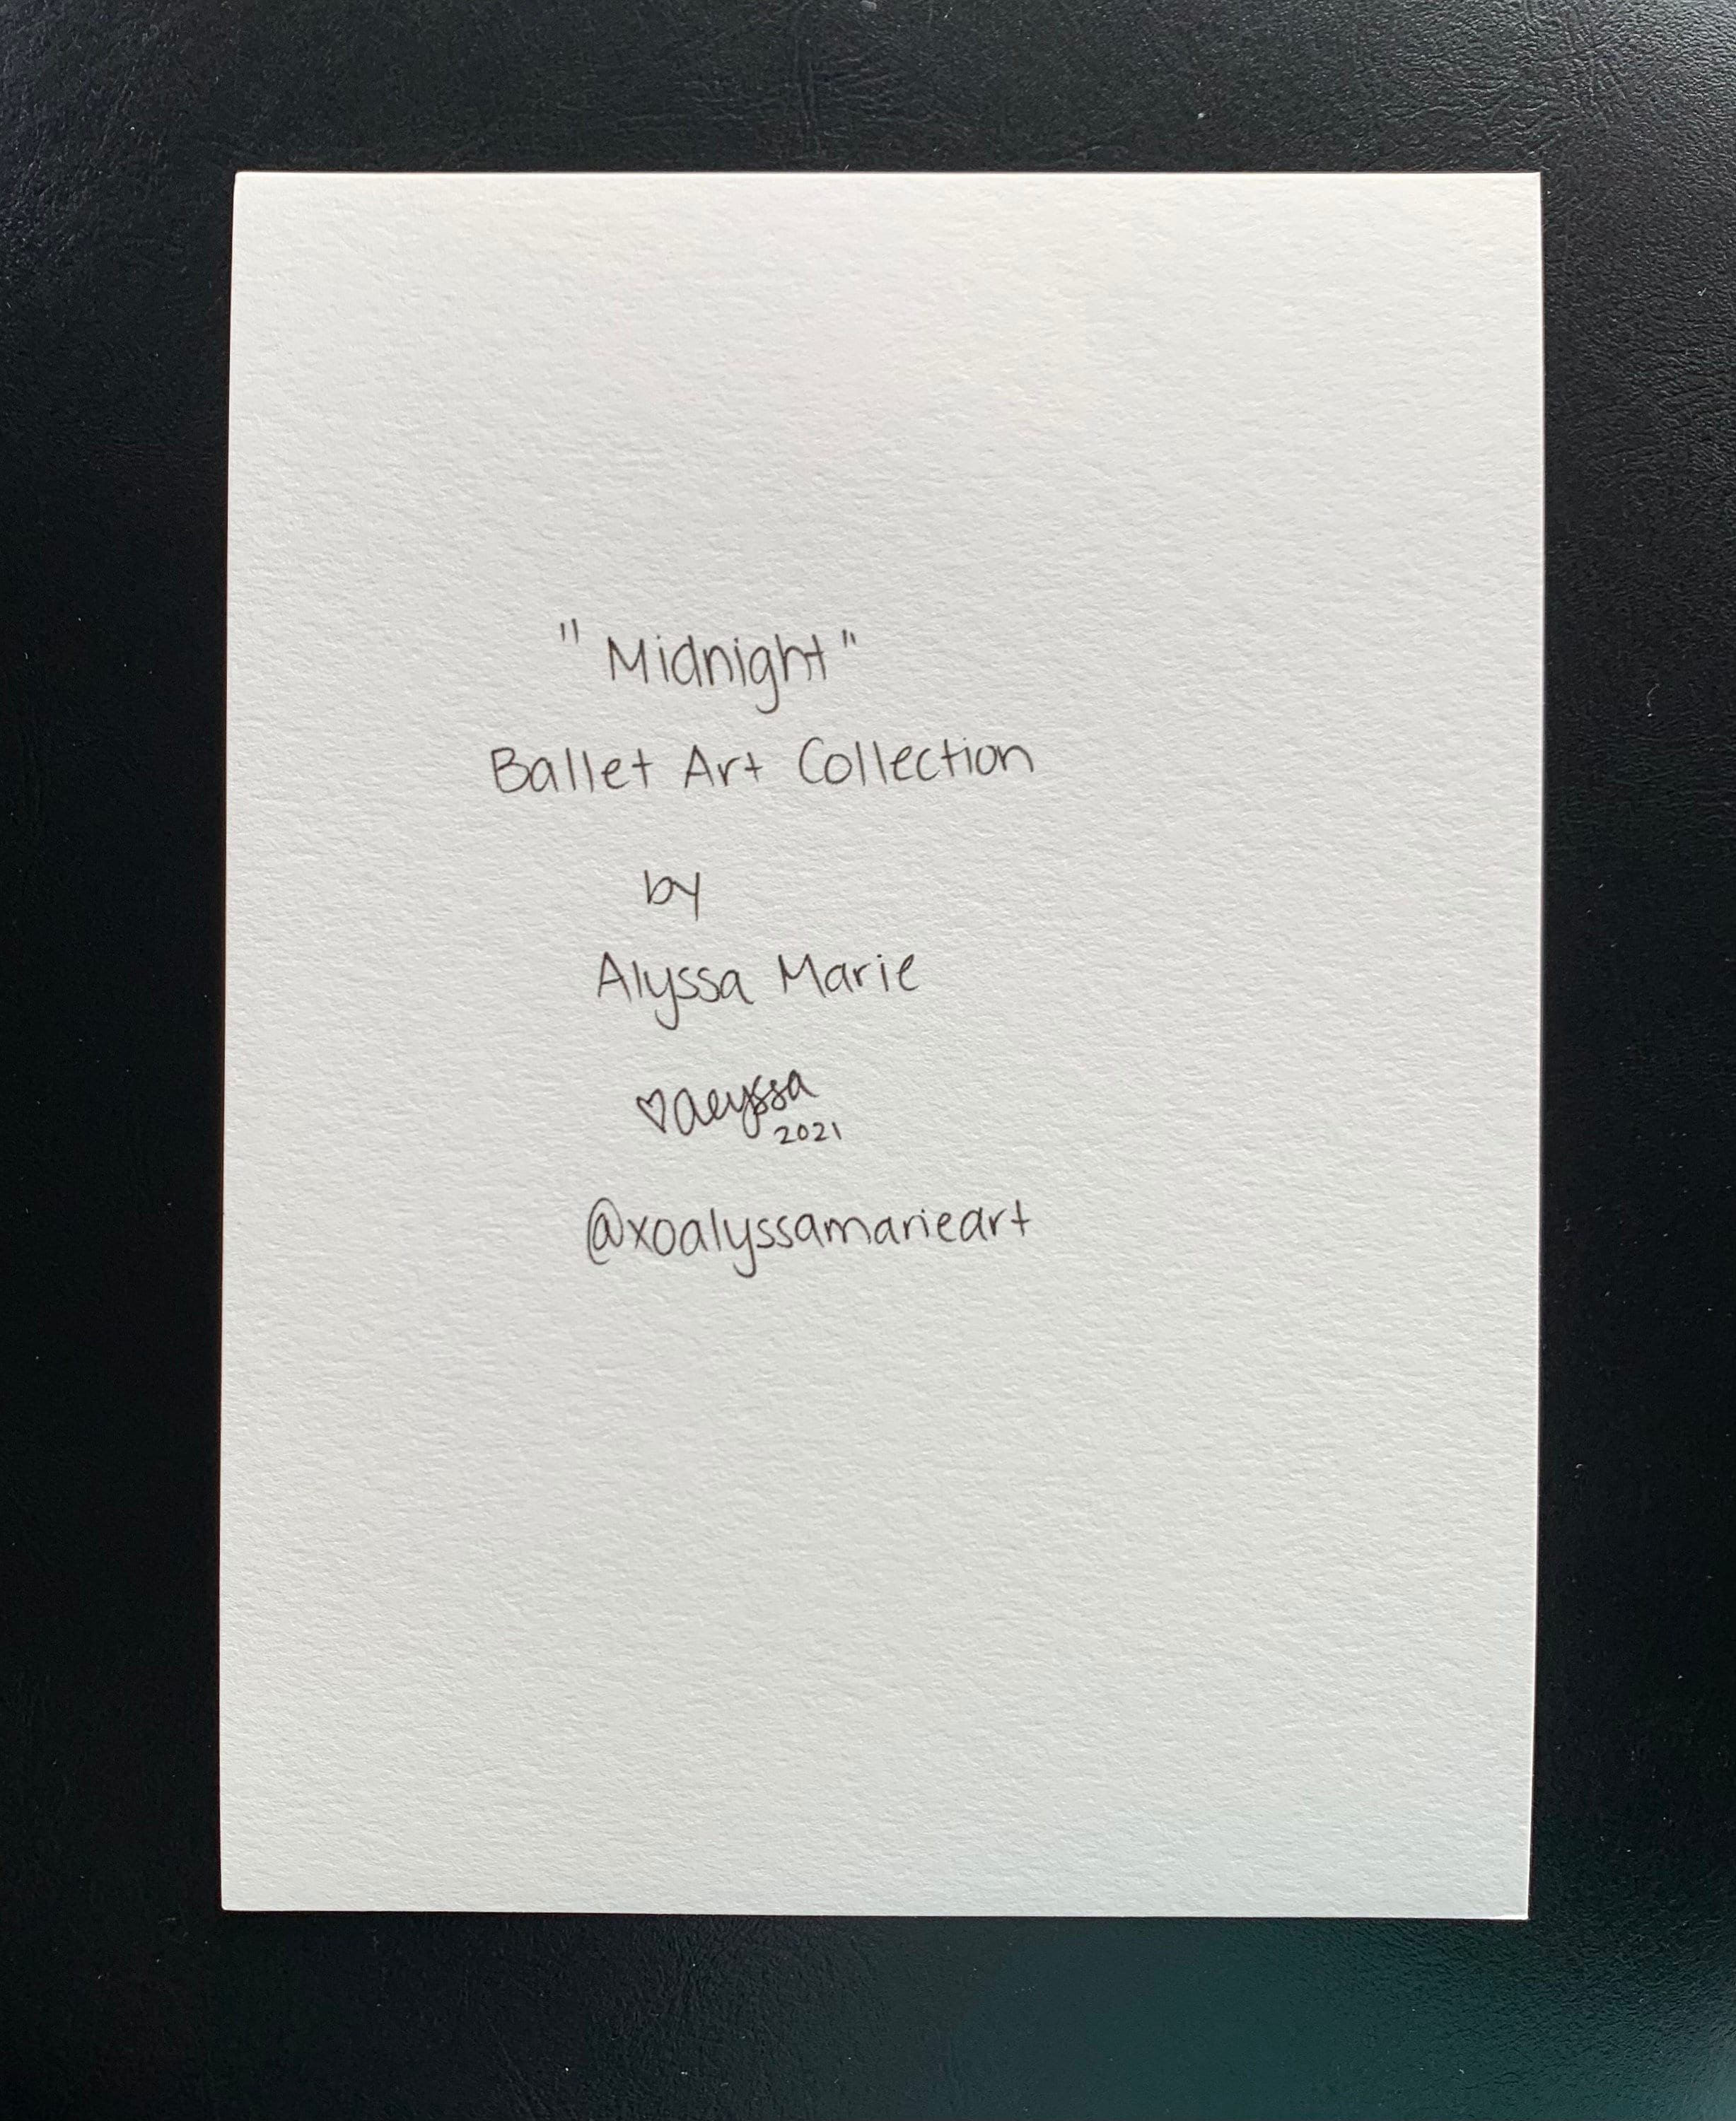 "Midnight"
Ballet Art Collection
by
Alyssa Marie
♡alyssa
2021
@xoalyssamarieart